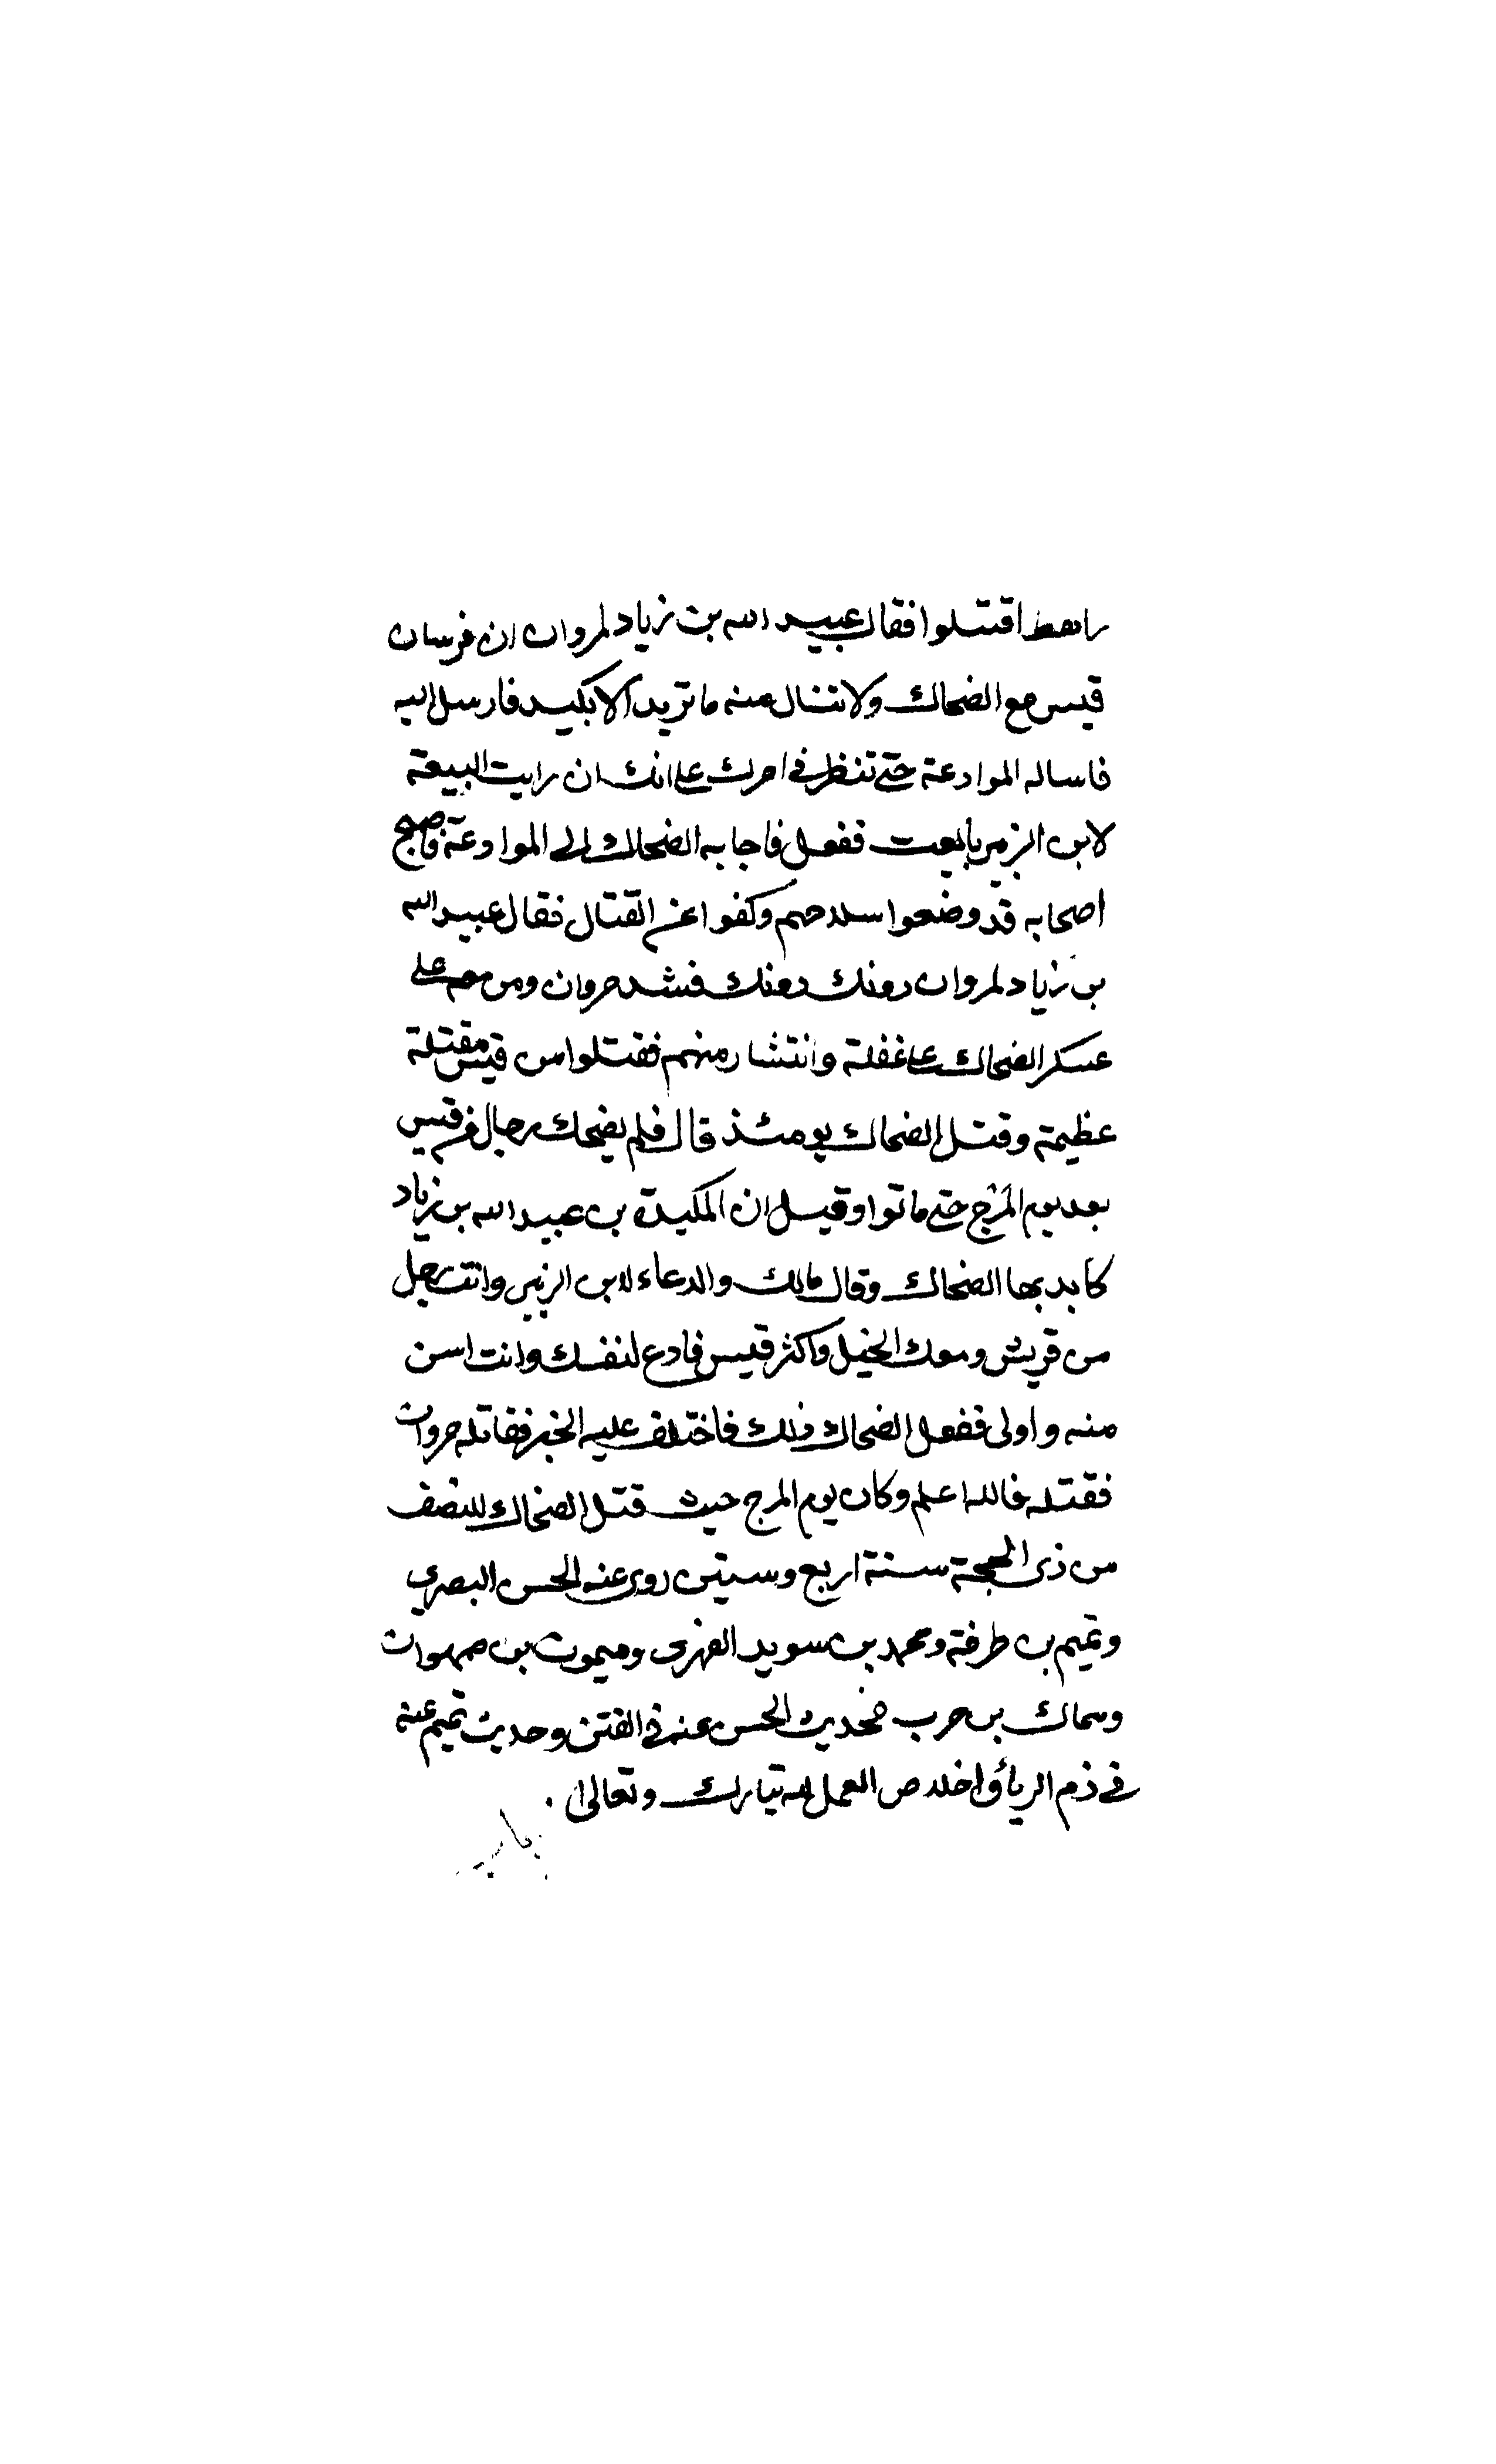 راهط اقتتلوا فقال عبيد الله بن زياد لمروان ان فرسان
قيس مع الضحاك ولا تنال منه ما تريد الا بكيد فارسل اليه
فاساله الموادعة حتى تنظر في امرك على انك ان رايت البيعة
لابن الزبير بايعت ففعل فاجابه الضحاك الى الموادعة فاصبح
اصحابه قد وضعوا سلاحهم وكفوا عن القتال فقال عبيد الله
بن زياد لمروان دونك دونك فشد مروان ومن معه على
عسكر الضحاك على غفلة وانتشار منهم فقتلوا من قيس مقتلة
عظيمة وقتل الضحاك يومئذ قال فلم يضحك رجال من قيس
بعد يوم المرج حتى ماتوا وقيل ان المكيدة بن عبيد الله بن زياد
كايد بها الضحاك وقال مالك والدعاء لابن الزبير وانت رجل
من قريش ومعك الخيل واكثر قيس فادع لنفسك وانت اسن
منه واولى ففعل الضحاك ذلك فاختلف عليه الخبر فقاتله مروان
فقتله فالله اعلم وكان يوم المرج حيث قتل الضحاك للنصف
من ذى الحجة سنة اربع وستين روى عنه الحسن البصري
وتميم بن طرفة ومحمد بن سويد الفهرى وميمون بن مهران
وسماك بن حرب فحديث الحسن عنه في الفتن وحديث تميم عنه
في ذم الريأ واخلاص العمل لله تبارك وتعالى .